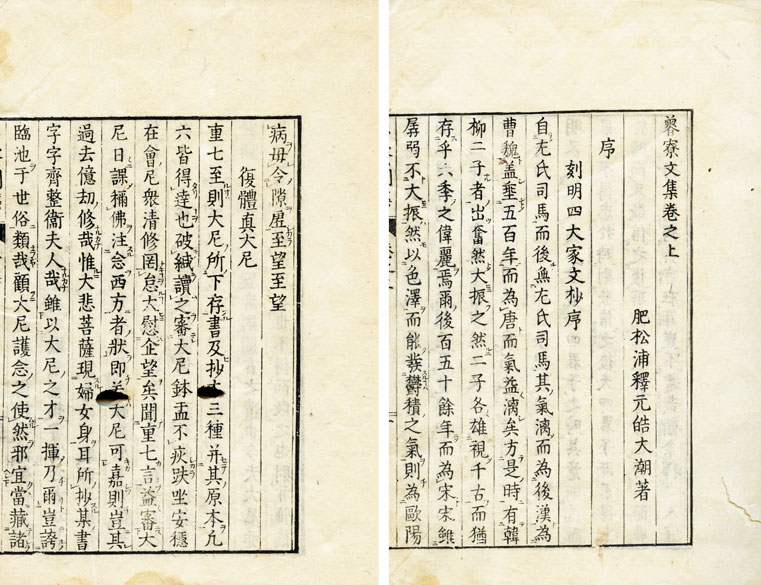 魯寮文集卷之上
肥松浦釋元皓大潮著
序
刻明四大家文抄序
自左氏司馬而後無左氏司馬其氣漓而為後漢為
曹魏蓋垂五百年而為唐而氣益漓矣方是時有韓
柳二子者出奮然大振之然二子各雄視千古而猶
存乎六季之偉麗焉爾後百五十餘年而為宋宋雖
孱弱不大振然以色澤而能發鬱積之氣則為歐陽
病毋令隙虛至望至望
復體真大尼
重七至則大尼所下存書及抄三種并其原本凡
六皆得達也破緘讀之審大尼鉢盂不疾趺坐安穩
在會尼衆清修罔怠大慰企望矣聞重七言益審大
尼日課稱佛注念西方者狀即大尼可嘉則豈其
過去億劫修哉惟大悲菩薩現婦女身耳所抄某書
字字齊整衞夫人哉雖以大尼之才一揮乃爾豈誇
臨池于世俗類哉顧大尼護念之使然邪宜當藏諸